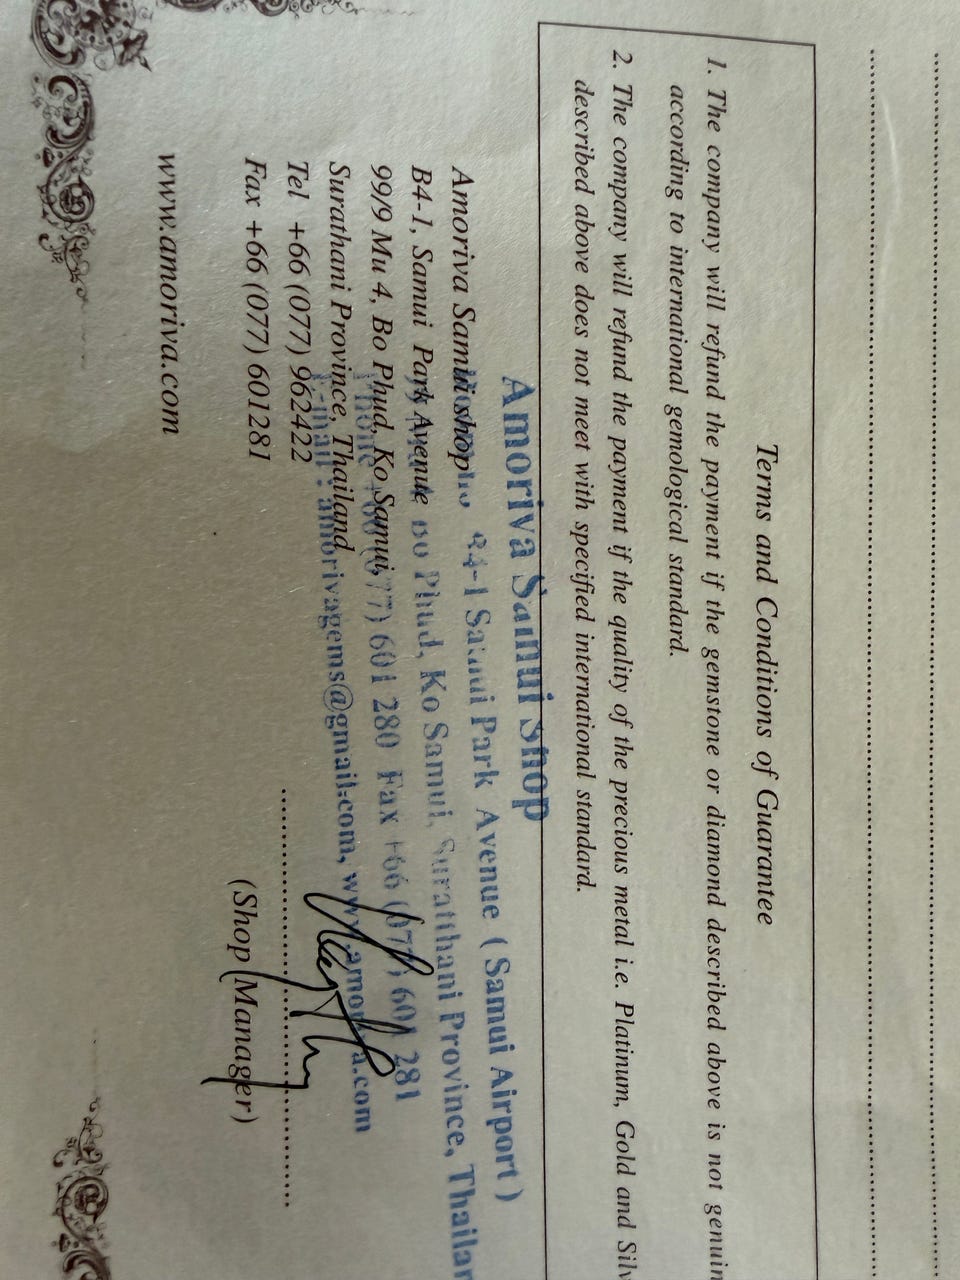 Terms and Conditions of Guarantee
1. The company will refund the payment if the gemstone or diamond described above is not genuin
according to international gemological standard.
2. The company will refund the payment if the quality of the precious metal i.e. Platinum, Gold and Silv
described above does not meet with specified international standard.
Amoriva Samui Shop
B4-1 Samui Park Avenue ( Samui Airport )
Bo Phud, Ko Samui, Suratthani Province, Thailan
Phone +66 (077) 601 280 Fax +66 (077) 601 281
E-mail : amorivagems@gmail.com, www.amoriva.com
Amoriva Samui shop
B4-1, Samui Park Avenue
99/9 Mu 4, Bo Phud, Ko Samui,
Surathani Province, Thailand
Tel +66 (077) 962422
Fax +66 (077) 601281
(Shop Manager)
www.amoriva.com